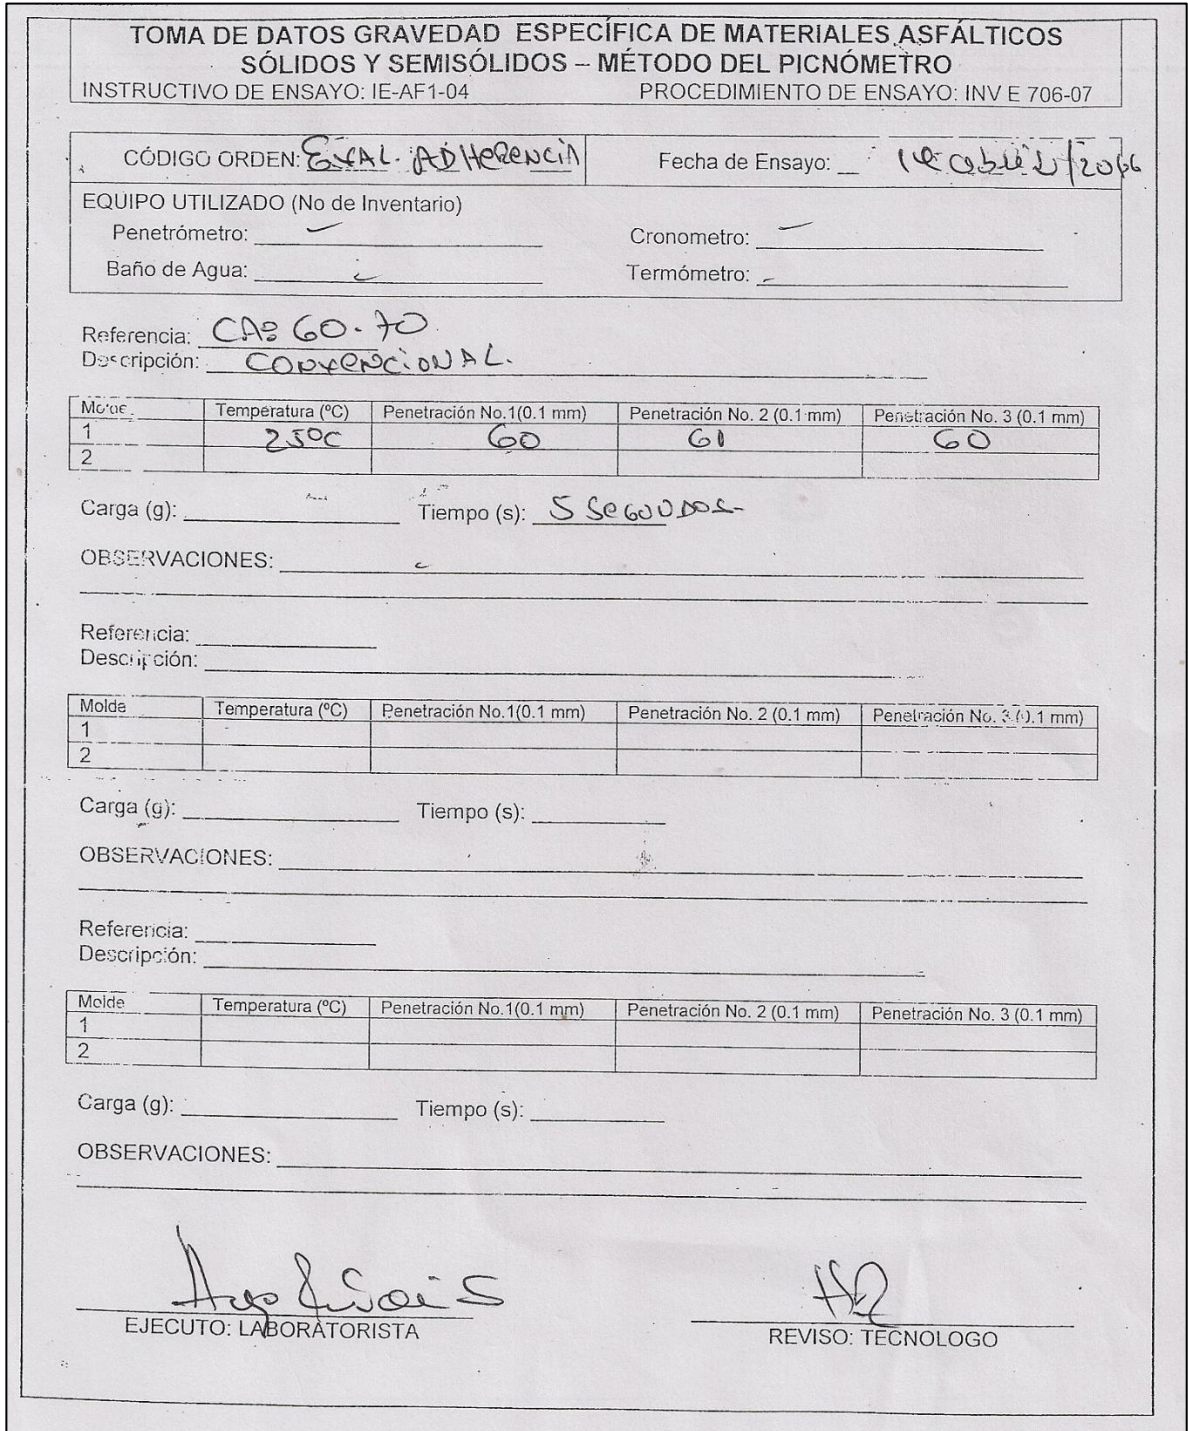 TOMA DE DATOS GRAVEDAD ESPECÍFICA DE MATERIALES ASFÁLTICOS
SÓLIDOS Y SEMISÓLIDOS – MÉTODO DEL PICNÓMETRO
INSTRUCTIVO DE ENSAYO: IE-AF1-04 PROCEDIMIENTO DE ENSAYO: INV E 706-07
CÓDIGO ORDEN: EVAL. ADHERENCIA Fecha de Ensayo: abril/
EQUIPO UTILIZADO (No de Inventario)
Penetrómetro: Cronometro:
Baño de Agua: Termómetro:
Referencia: CA: 60-70
Descripción: CONVENCIONAL.
Molde Temperatura (ºC) Penetración No.1(0.1 mm) Penetración No. 2 (0.1 mm) Penetración No. 3 (0.1 mm)
1 25ºC 60 61 60
2
Carga (g): Tiempo (s): 5 SEGUNDOS
OBSERVACIONES:
Referencia:
Descripción:
Molde Temperatura (ºC) Penetración No.1(0.1 mm) Penetración No. 2 (0.1 mm) Penetración No. 3 (0.1 mm)
1
2
Carga (g): Tiempo (s):
OBSERVACIONES:
Referencia:
Descripción:
Molde Temperatura (ºC) Penetración No.1(0.1 mm) Penetración No. 2 (0.1 mm) Penetración No. 3 (0.1 mm)
1
2
Carga (g): Tiempo (s):
OBSERVACIONES:
EJECUTO: LABORATORISTA REVISO: TECNOLOGO